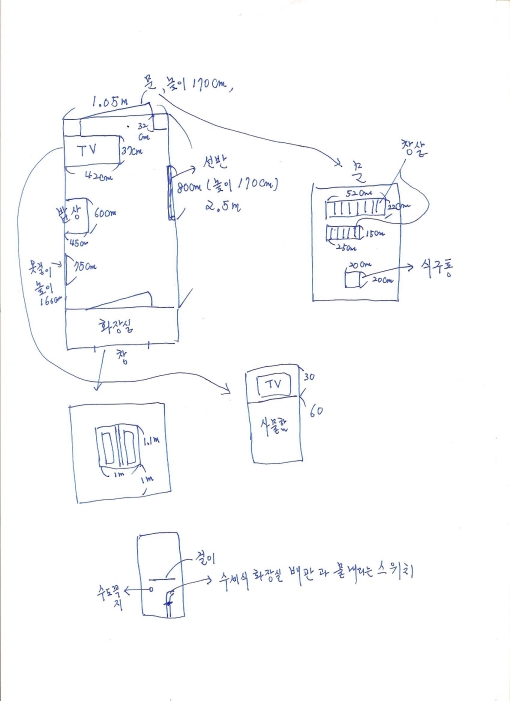 문, 높이 170cm,
1.05m
32
cm
TV
37cm
42cm
선반
80cm (높이 170cm)
2.5m
밥상
60cm
45cm
옷걸이
높이
166cm
75cm
화장실
창
문
창살
52cm
22cm
15cm
25cm
20cm
20cm
식구통
TV
30
60
사물함
1.1m
1m
1m
걸이
수도꼭
지
수세식 화장실 배관과 물내리는 스위치